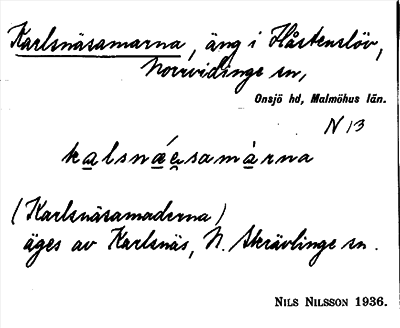 Karlsnäsamarna, äng i Håstenslöv,
Norrvidinge sn,
Onsjö hd, Malmöhus län.
N 13
kalsnǽe̯samàrna
(Karlsnäsamaderna)
äges av Karlsnäs, N. Skrävlinge sn.
NILS NILSSON 1936.